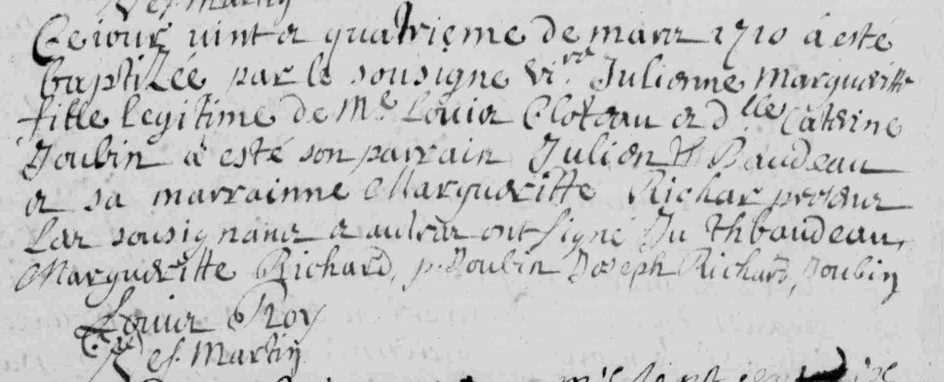 ef. Martin
Ce jour vint et quatrieme de mars 1710 à esté
baptizée par le sousigné vi.re Julienne Margueritte
fille legitime de Me Louis Cloteau et dlle Caterine
Joubin à esté son parrain Julien Th Baudeau
et sa marrainne Margueritte Richar presens
Les sousignans et autres ont signe Ju Thbaudeau,
Margueritte Richard, p. Joubin Joseph Richard, Joubin
Louis Roy
ef. Martin